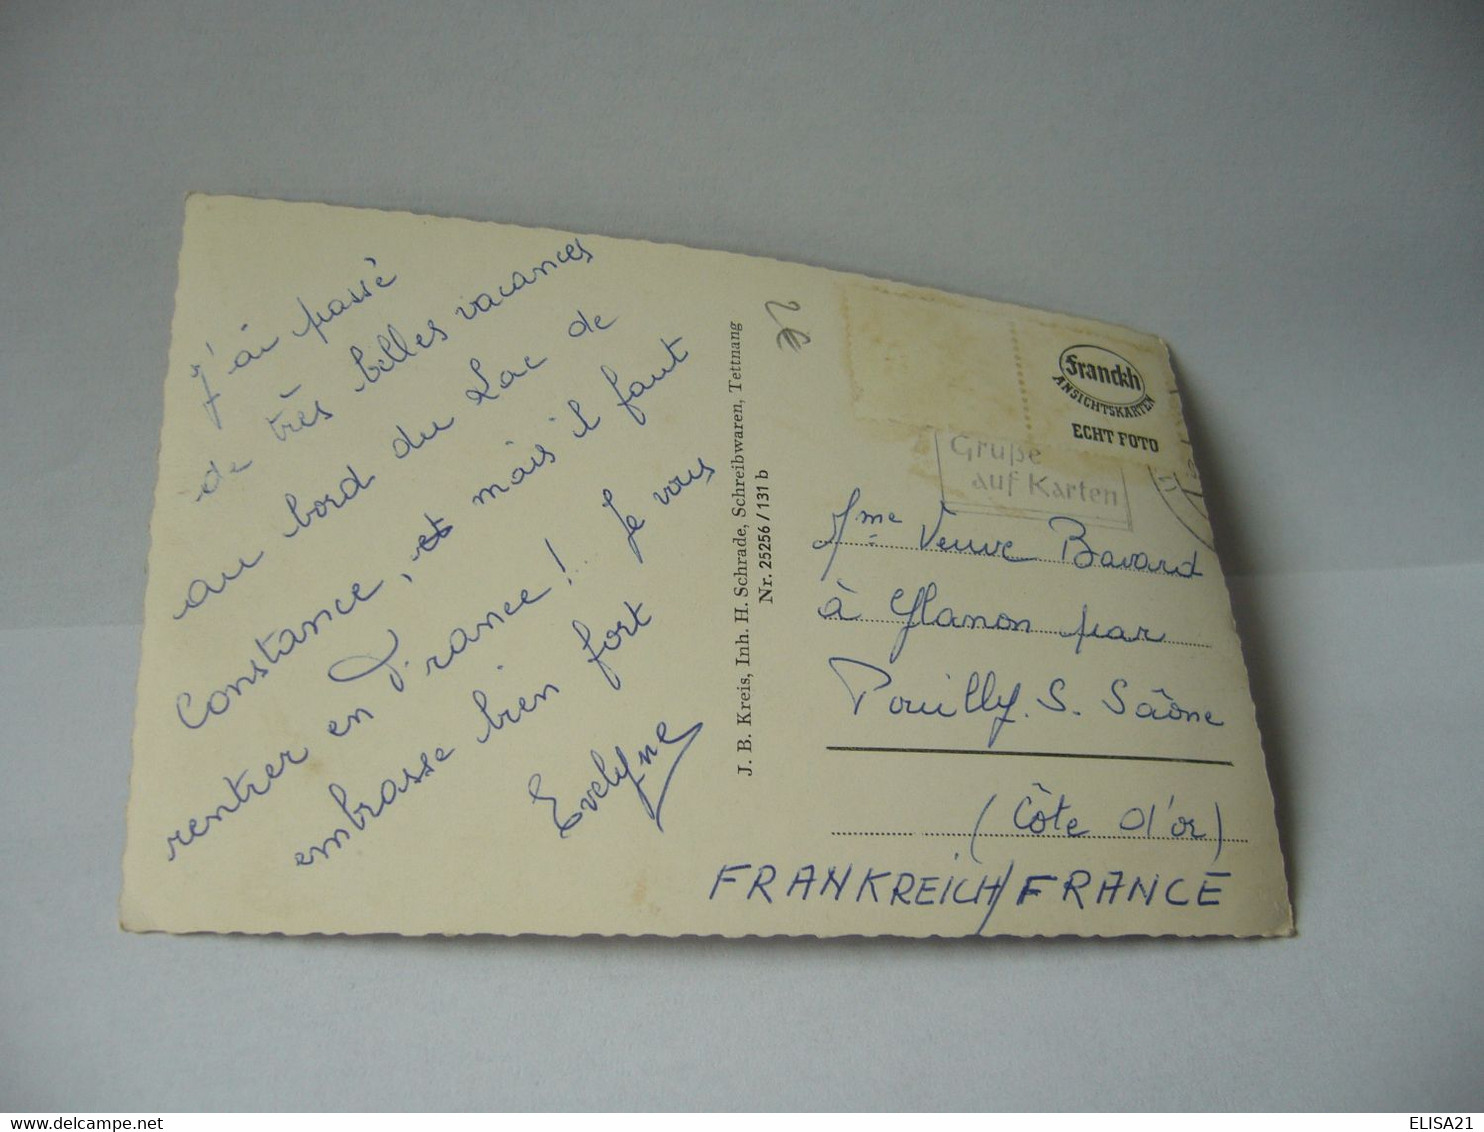 J'ai passé
de très belles vacances
au bord du Lac de
Constance, et mais il faut
rentrer en France! Je vous
embrasse bien fort
Evelyne
J. B. Kreis, Inh. H. Schrade, Schreibwaren, Tettnang
Nr. 25256 / 131 b
2€
Franckh
ANSICHTSKARTEN
ECHT FOTO
Grüße
auf Karten
Mme Veuve Bavard
à Glanon par
Pouilly. S. Saône
(Côte d'or)
FRANKREICH/FRANCE
delcampe.net
ELISA21